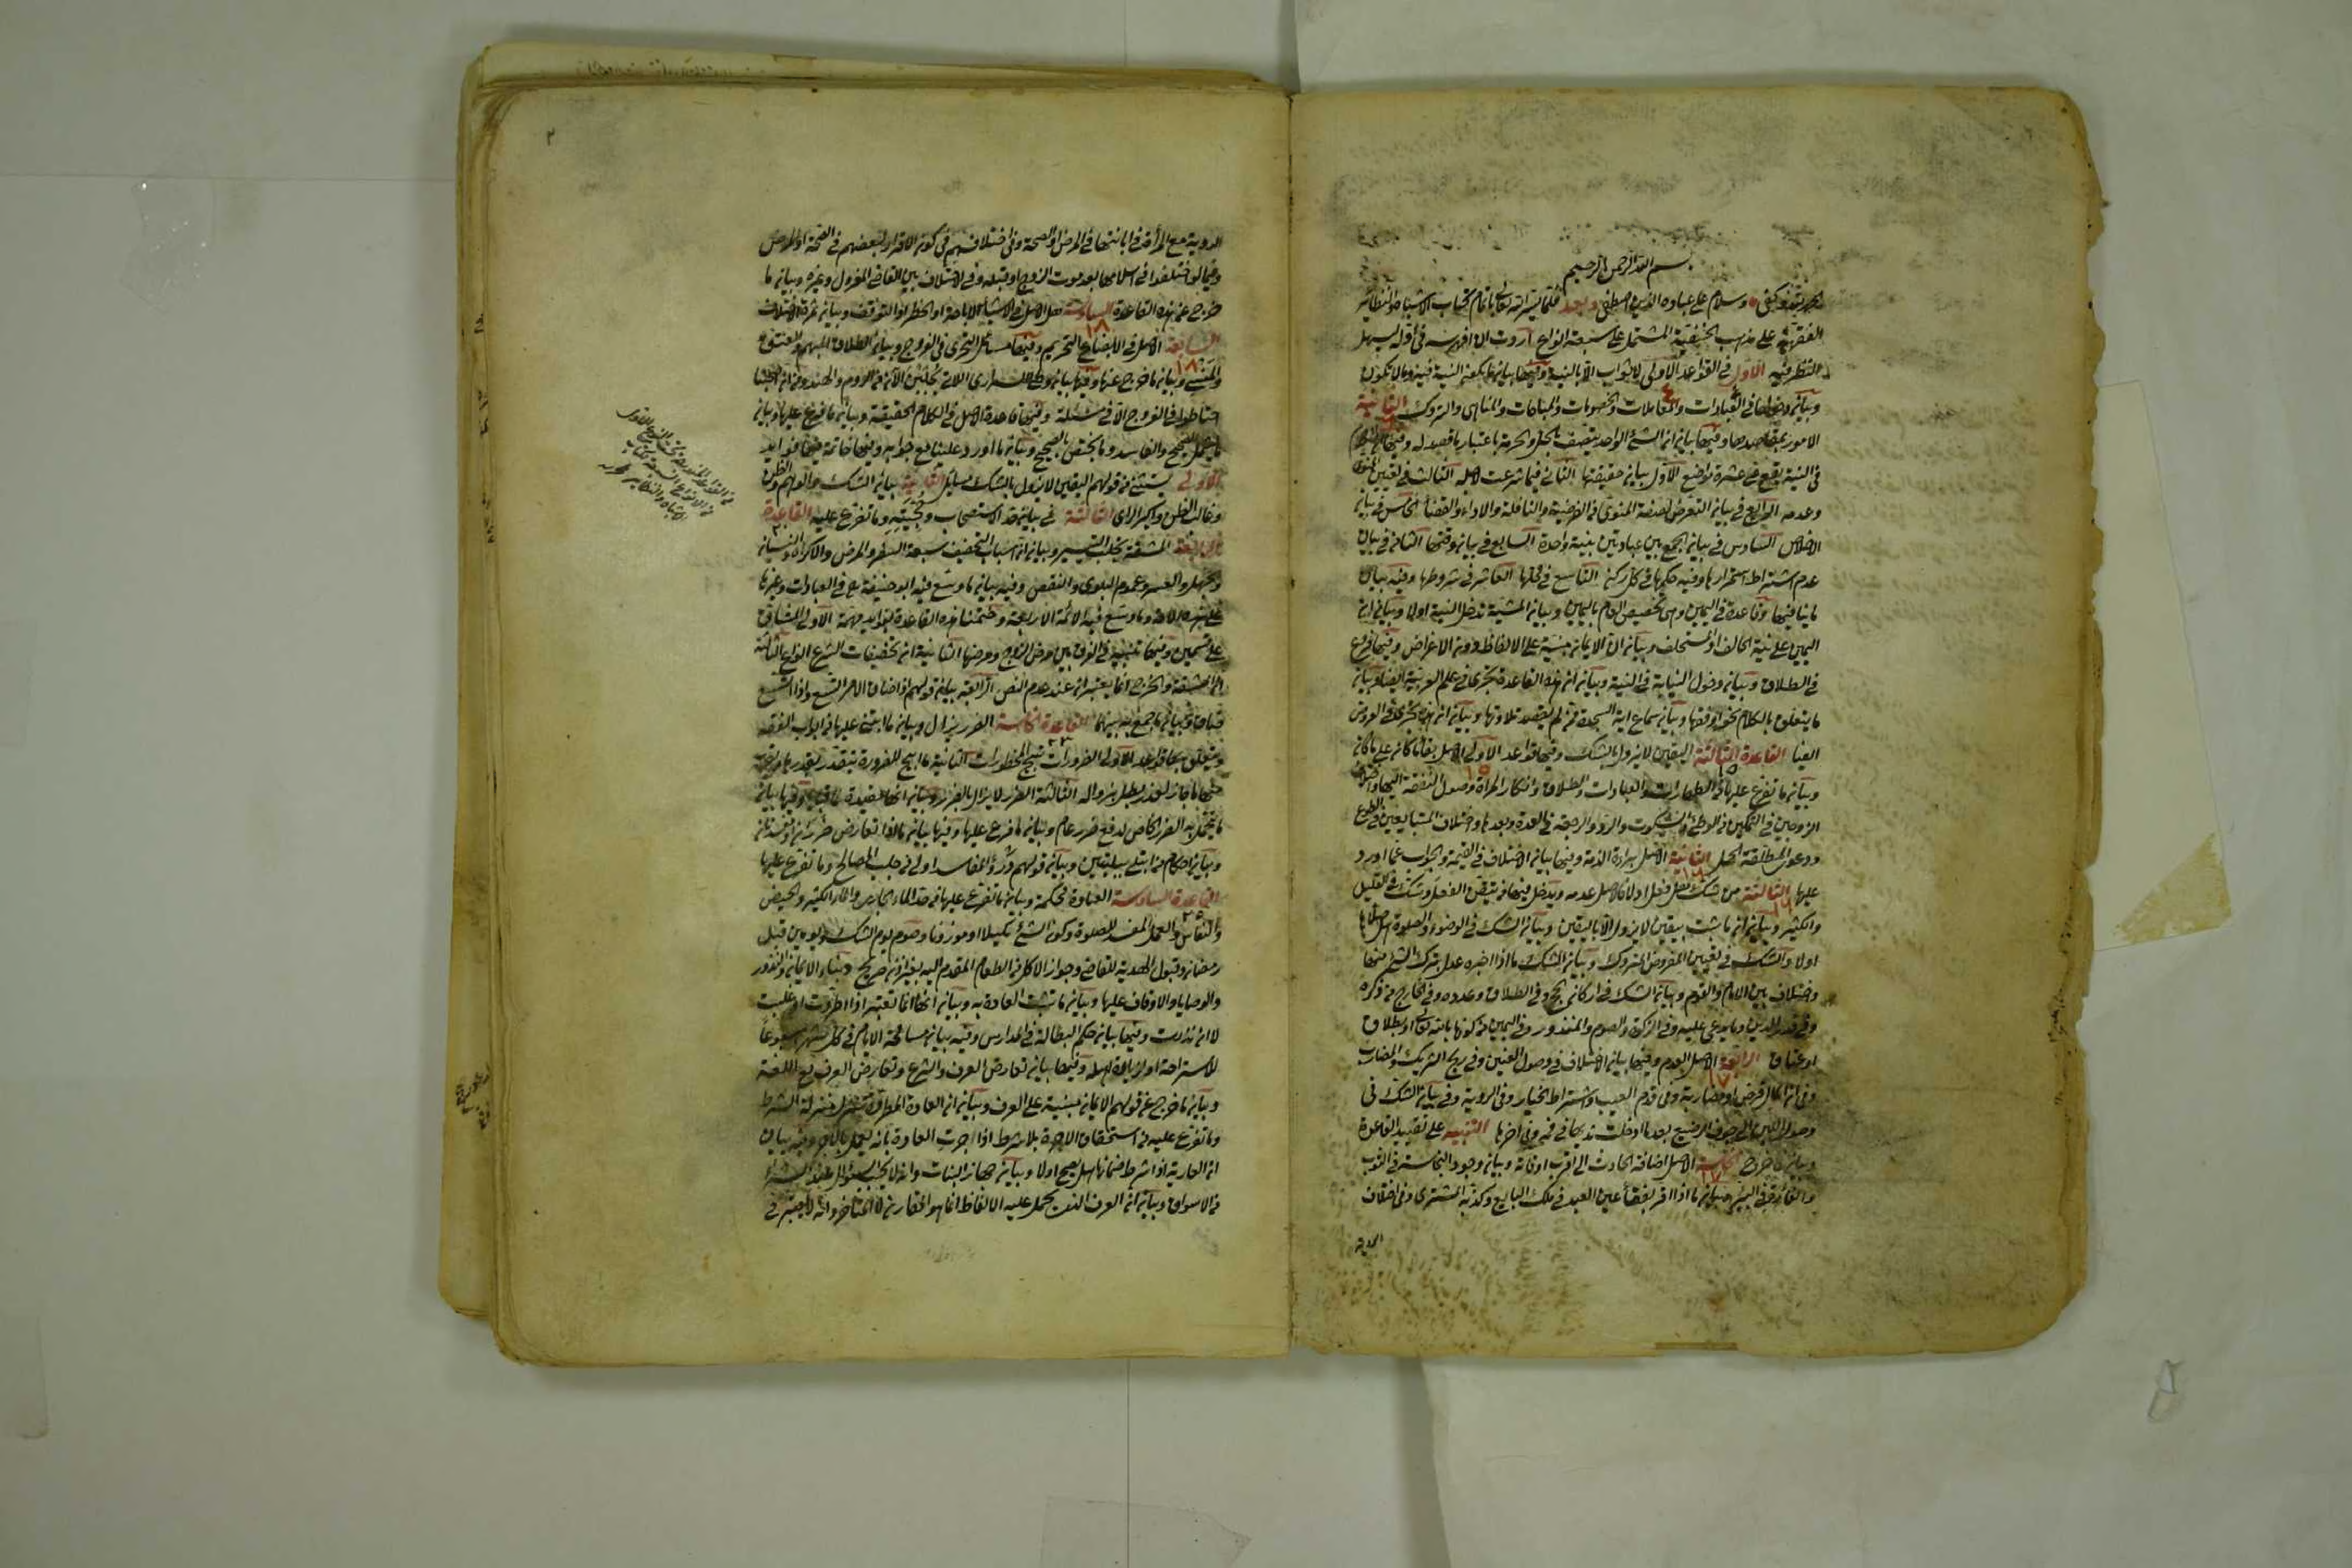 بسم الله الرحمن الرحيم
الحمد لله وكفى وسلام على عباده الذين اصطفى وبعد فلما يسر الله تعالى باتمام كتاب الاشباه والنظائر
الفقهية على مذهب الحنفية المشتمل على سبعة انواع اردت ان افهرسه في اوله ليسهل
النظر فيه الاول في القواعد الاولى لا ثواب الا بالنية وفيها بيان ما يكون النية فيه وما لا يكون
وبيان دخولها في العبادات والمعاملات والخصومات والمباحات والمناهي والتروك الثانية
الامور بمقاصدها وفيها بيان ان الشئ الواحد يتصف بالحل والحرمة باعتبار ما قصد له وفيها
في النية يقع في عشرة مواضع الاول بيان حقيقتها الثاني فيما شرعت لاجله الثالث في تعيين المنوي
وعدمه الرابع في بيان التعرض لصفة المنوي من الفرضية والنافلة والاداء والقضاء الخامس في بيان
الاخلاص السادس في بيان الجمع بين عبادتين بنية واحدة السابع في بيان وقتها الثامن في بيان
عدم اشتراط استمرارها وفيه حكمها في كل ركن التاسع في محلها العاشر في شروطها وفيه بيان
ما ينافيها وقاعدة في اليمين وهي تخصيص العام باليمين وبيان المشية تدخل النية اولا وبيان ان
اليمين على نية الحالف او المستحلف وبيان ان الايمان مبنية على الالفاظ دون الاغراض وفيها فرع
في الطلاق وبيان دخول النيابة في النية وبيان ان هذه القاعدة تجري في علم العربية ايضا وبيان
ما يتعلق بالكلام نحوا وفقها وبيان سماع اية السجدة ممن لم يقصد تلاوتها وبيان انها تجري في العروض
ايضا القاعدة الثالثة اليقين لا يزول بالشك وفيها قواعد الاولى الاصل بقاء ما كان على ما كان
وبيان ما تفرع عليها في الطهارات والعبادات والطلاق وانكار المراة وصول النفقة اليها واختلاف
الزوجين في التمكين من الوطئ والسكوت والرد والرجعة في العدة وبعدها واختلاف المتبايعين في الطوع
ودعوى المطلقة الحمل الثانية الاصل براءة الذمة وفيها بيان الاختلاف في القيمة والجواب عما اورد
عليها الثالثة من شك هل فعل اولا فالاصل عدمه ويدخل فيها من تيقن الفعل وشك في القليل
والكثير وبيان ان ما ثبت بيقين لا يزول الا باليقين وبيان الشك في الوضوء والصلوة هل صلاها
اولا والشك في تعيين المفروض المتروك وبيان الشك ما اذا اخبره عدل بترك الشئ منها
واختلاف بين الامام والقوم وبيان الشك في اركان الحج وفي الطلاق وعدده وفي الخارج من ذكره
وفي قدر الدين وما يدعى عليه وفي الزكوة والصوم والمنذور وفي اليمين من كونها بالله تعالى او بطلاق
او عتاق الرابعة الاصل العدم وفيها بيان الاختلاف في وصول العنين وفي ربح الشريك والمضارب
وفي ان المال قرض او مضاربة وفي قدم العيب واشتراط الخيار وفي الروية وفي بيان الشك في
وصول اللبن الى جوف الرضيع بعد ما ادخلت ثديها في فيه وفي اخرها التنبيه على تقييد القاعدة
وبيان ما خرج الخامسة الاصل اضافة الحادث الى اقرب اوقاته وبيان وجود النجاسة في الثوب
والفارة في البئر وبيان ما اذا اقر بفقأ عين العبد في ملك البايع وكذبه المشتري وفي اختلاف
المدونة
٢
مع المراة في ابانتها في المرض او الصحة وفي اختلافهم في كون الاقرار لبعضهم في الصحة او المرض
وفيما لو اختلفوا في اسلامها بعد موت الزوج او قبله وفي الاختلاف بين القاضي المعزول وغيره وبيان ما
خرج عن هذه القاعدة السادسة هل الاصل في الاشياء الاباحة او الحظر او التوقف وبيان ثمرة الاختلاف
السابعة الاصل في الابضاع التحريم وفيها مسائل التحري في الفروج وبيان الطلاق المبهم والعتق
وبيان ما خرج عنها وفيها بيان وطئ السراري اللاتي يجلبن الآن من الروم والهند وان اصحابنا
احتاطوا في الفروج الا في مسئلة وفيها قاعدة الاصل في الكلام الحقيقة وبيان ما فرع عليها وبيان
ما يشمل الصحيح والفاسد وما يختص بالصحيح وبيان ما اورد علينا مع جوابه وفيها خاتمة فيها فوائد
الاولى يستثنى من قولهم اليقين لا يزول بالشك مسائل الثانية بيان الشك والوهم والظن
وغالب الظن واكبر الراي الثالثة في بيان حد الاستصحاب وحجيته وما تفرع عليه القاعدة
الرابعة المشقة تجلب التيسير وبيان ان اسباب التخفيف سبعة السفر والمرض والاكراه والنسيان
والجهل والعسر وعموم البلوى والنقص وفيه بيان ما وسع فيه ابو حنيفة رح في العبادات وغيرها
على هذه الامة وما وسع فيه الائمة الاربعة وختمنا هذه القاعدة بفوائد مهمة الاولى المشاق
على قسمين وفيها تنبيه في الفرق بين مرض الزوج ومرضها الثانية ان تخفيفات الشرع انواع الثالثة
ان المشقة والحرج انما يعتبران عند عدم النص الرابعة بيان قولهم اذا ضاق الامر اتسع واذا اتسع
ضاق وبيان ما جمع به بينهما القاعدة الخامسة الضرر يزال وبيان ما ابتنى عليها من ابواب الفقه
ويتعلق بها قواعد الاولى الضرورات تبيح المحظورات الثانية ما ابيح للضرورة يتقدر بقدرها
ما جاز لعذر بطل بزواله الثالثة الضرر لا يزال بالضرر وبيان انها مقيدة لما قبلها وفيها بيان
ما يتحمل به الضرر الخاص لدفع ضرر عام وبيان ما فرع عليها وفيها بيان ما اذا تعارض ضرران او مفسدتان
وبيان احكام من ابتلي ببليتين وبيان قولهم درء المفاسد اولى من جلب المصالح وما تفرع عليها
القاعدة السادسة العادة محكمة وبيان ما تفرع عليها من حد الماء الجاري والماء الكثير والحيض
والنفاس والعمل المفسد للصلوة وكون الشئ مكيلا او موزونا وصوم يوم الشك ويومين قبل
رمضان وقبول الهدية للقاضي وجواز الاكل من الطعام المقدم اليه بغير اذن صريح وبناء الايمان والنذور
والوصايا والاوقاف عليها وبيان ما تثبت العادة به وبيان انها انما تعتبر اذا اطردت او غلبت
لا ان ندرت وفيها بيان حكم البطالة في المدارس وفيه بيان مسامحة الامام في كل شهر اسبوعا
للاستراحة او لزيارة اهله وفيها بيان تعارض العرف والشرع وتعارض العرف مع اللغة
وبيان ما خرج عن قولهم الايمان مبنية على العرف وبيان ان العادة المطردة تنزل منزلة الشرط
وما تفرع عليه من استحقاق الاجرة بلا شرط اذا جرت العادة بانه يعمل بالاجر وفيه بيان
ان العارية اذا شرط ضمانها هل يصح اولا وبيان جهاز البنات وانه لا يجب السؤال عند الشراء
من الاسواق وبيان ان العرف الذي يحمل عليه الالفاظ انما هو المقارن لا المتأخر وانه لا يعتبر في